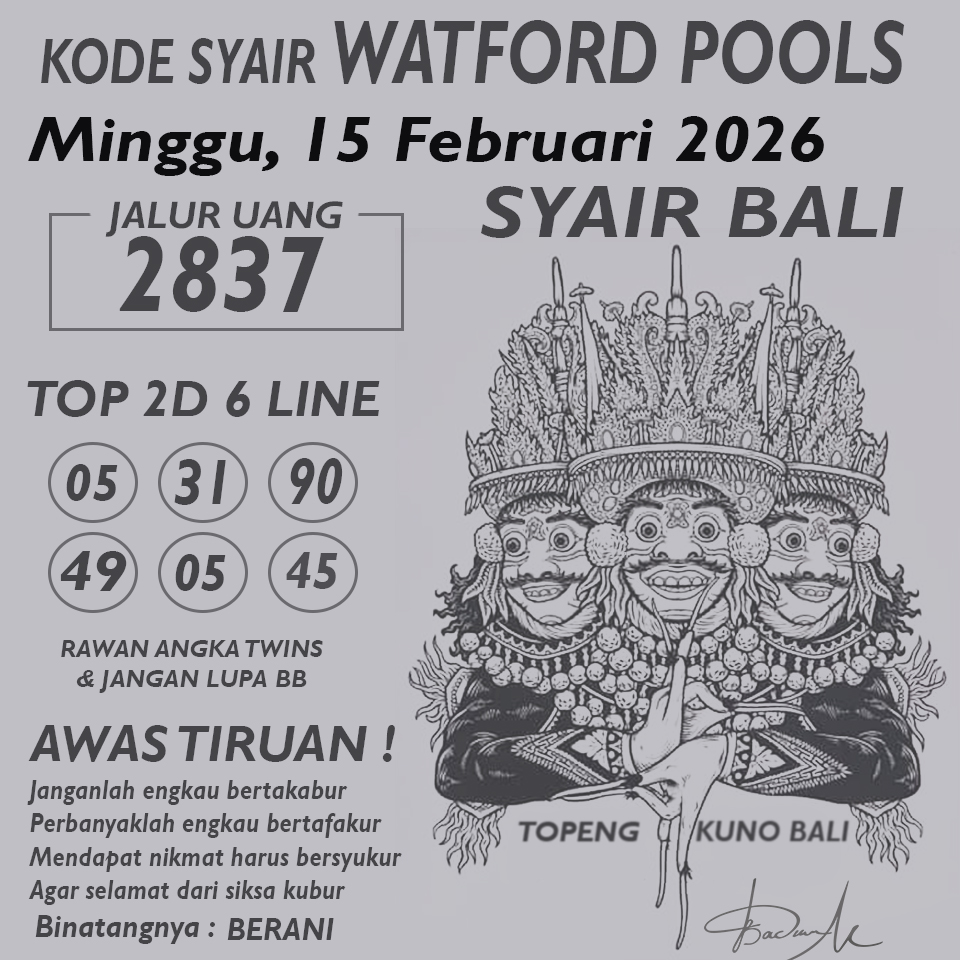 KODE SYAIR WATFORD POOLS
Minggu, 15 Februari 2026
SYAIR BALI
JALUR UANG
2837
TOP 2D 6 LINE
05 31 90
49 05 45
RAWAN ANGKA TWINS
& JANGAN LUPA BB
AWAS TIRUAN !
Janganlah engkau bertakabur
Perbanyaklah engkau bertafakur
Mendapat nikmat harus bersyukur
Agar selamat dari siksa kubur
Binatangnya : BERANI
TOPENG KUNO BALI